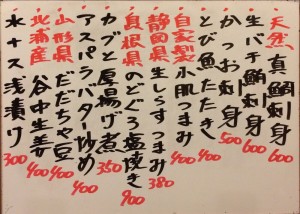 天然 真鯛刺身 600
生バチ鮪刺身 600
かつお刺身 500
とび魚たたき 400
自家製 小肌つまみ 400
静岡県 生しらすつまみ 380
島根県 のどぐろ塩焼き 900
カブと厚揚げ煮 350
アスパラバター炒め 400
山形県 だだちゃ豆 400
北浦産 谷中生姜 400
水ナス浅漬け 300